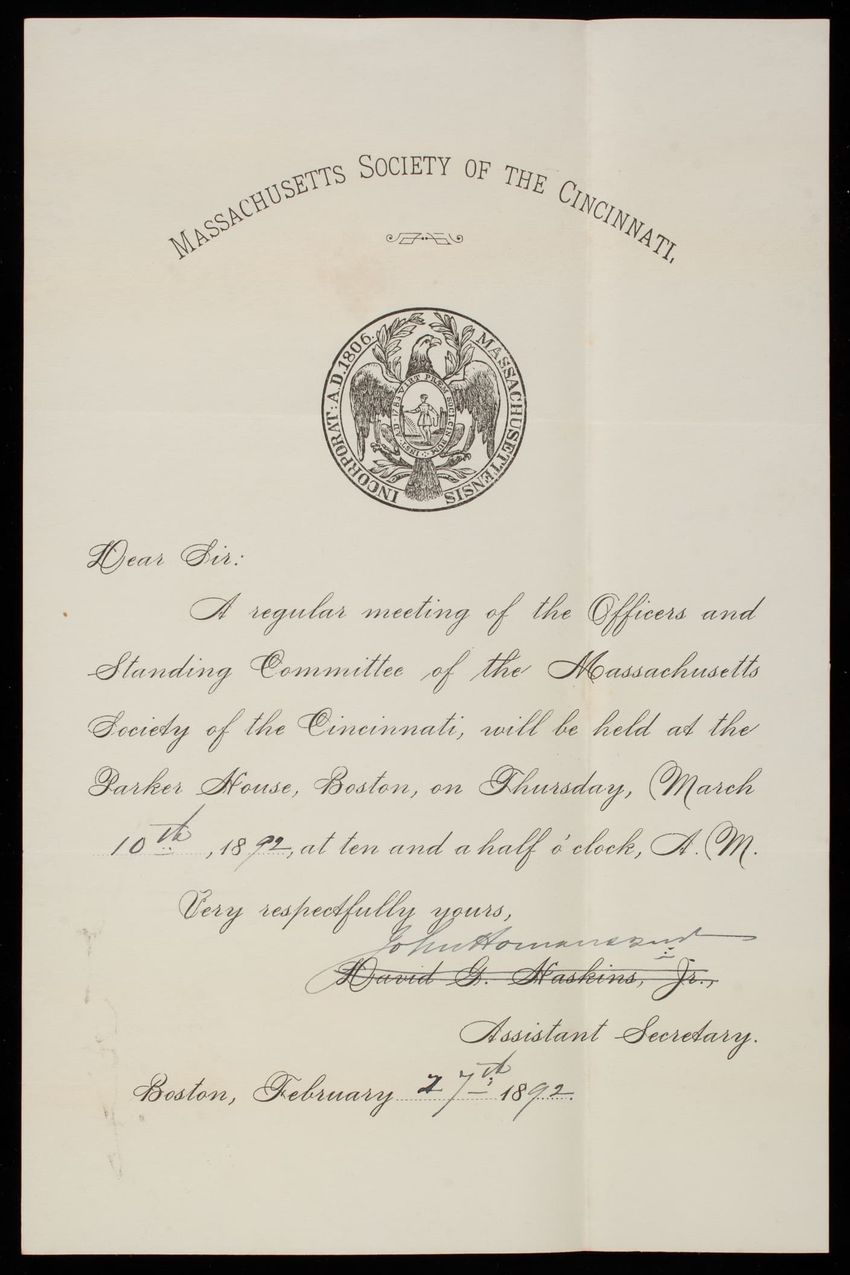 MASSACHUSETTS SOCIETY OF THE CINCINNATI.
INCORPORAT: A.D. 1806. MASSACHUSETTENSIS
Dear Sir:
A regular meeting of the Officers and
Standing Committee of the Massachusetts
Society of the Cincinnati, will be held at the
Parker House, Boston, on Thursday, March
10th, 1892, at ten and a half o'clock, A. M.
Very respectfully yours,
John Homans
David G. Haskins, Jr.,
Assistant Secretary.
Boston, February 27th 1892.